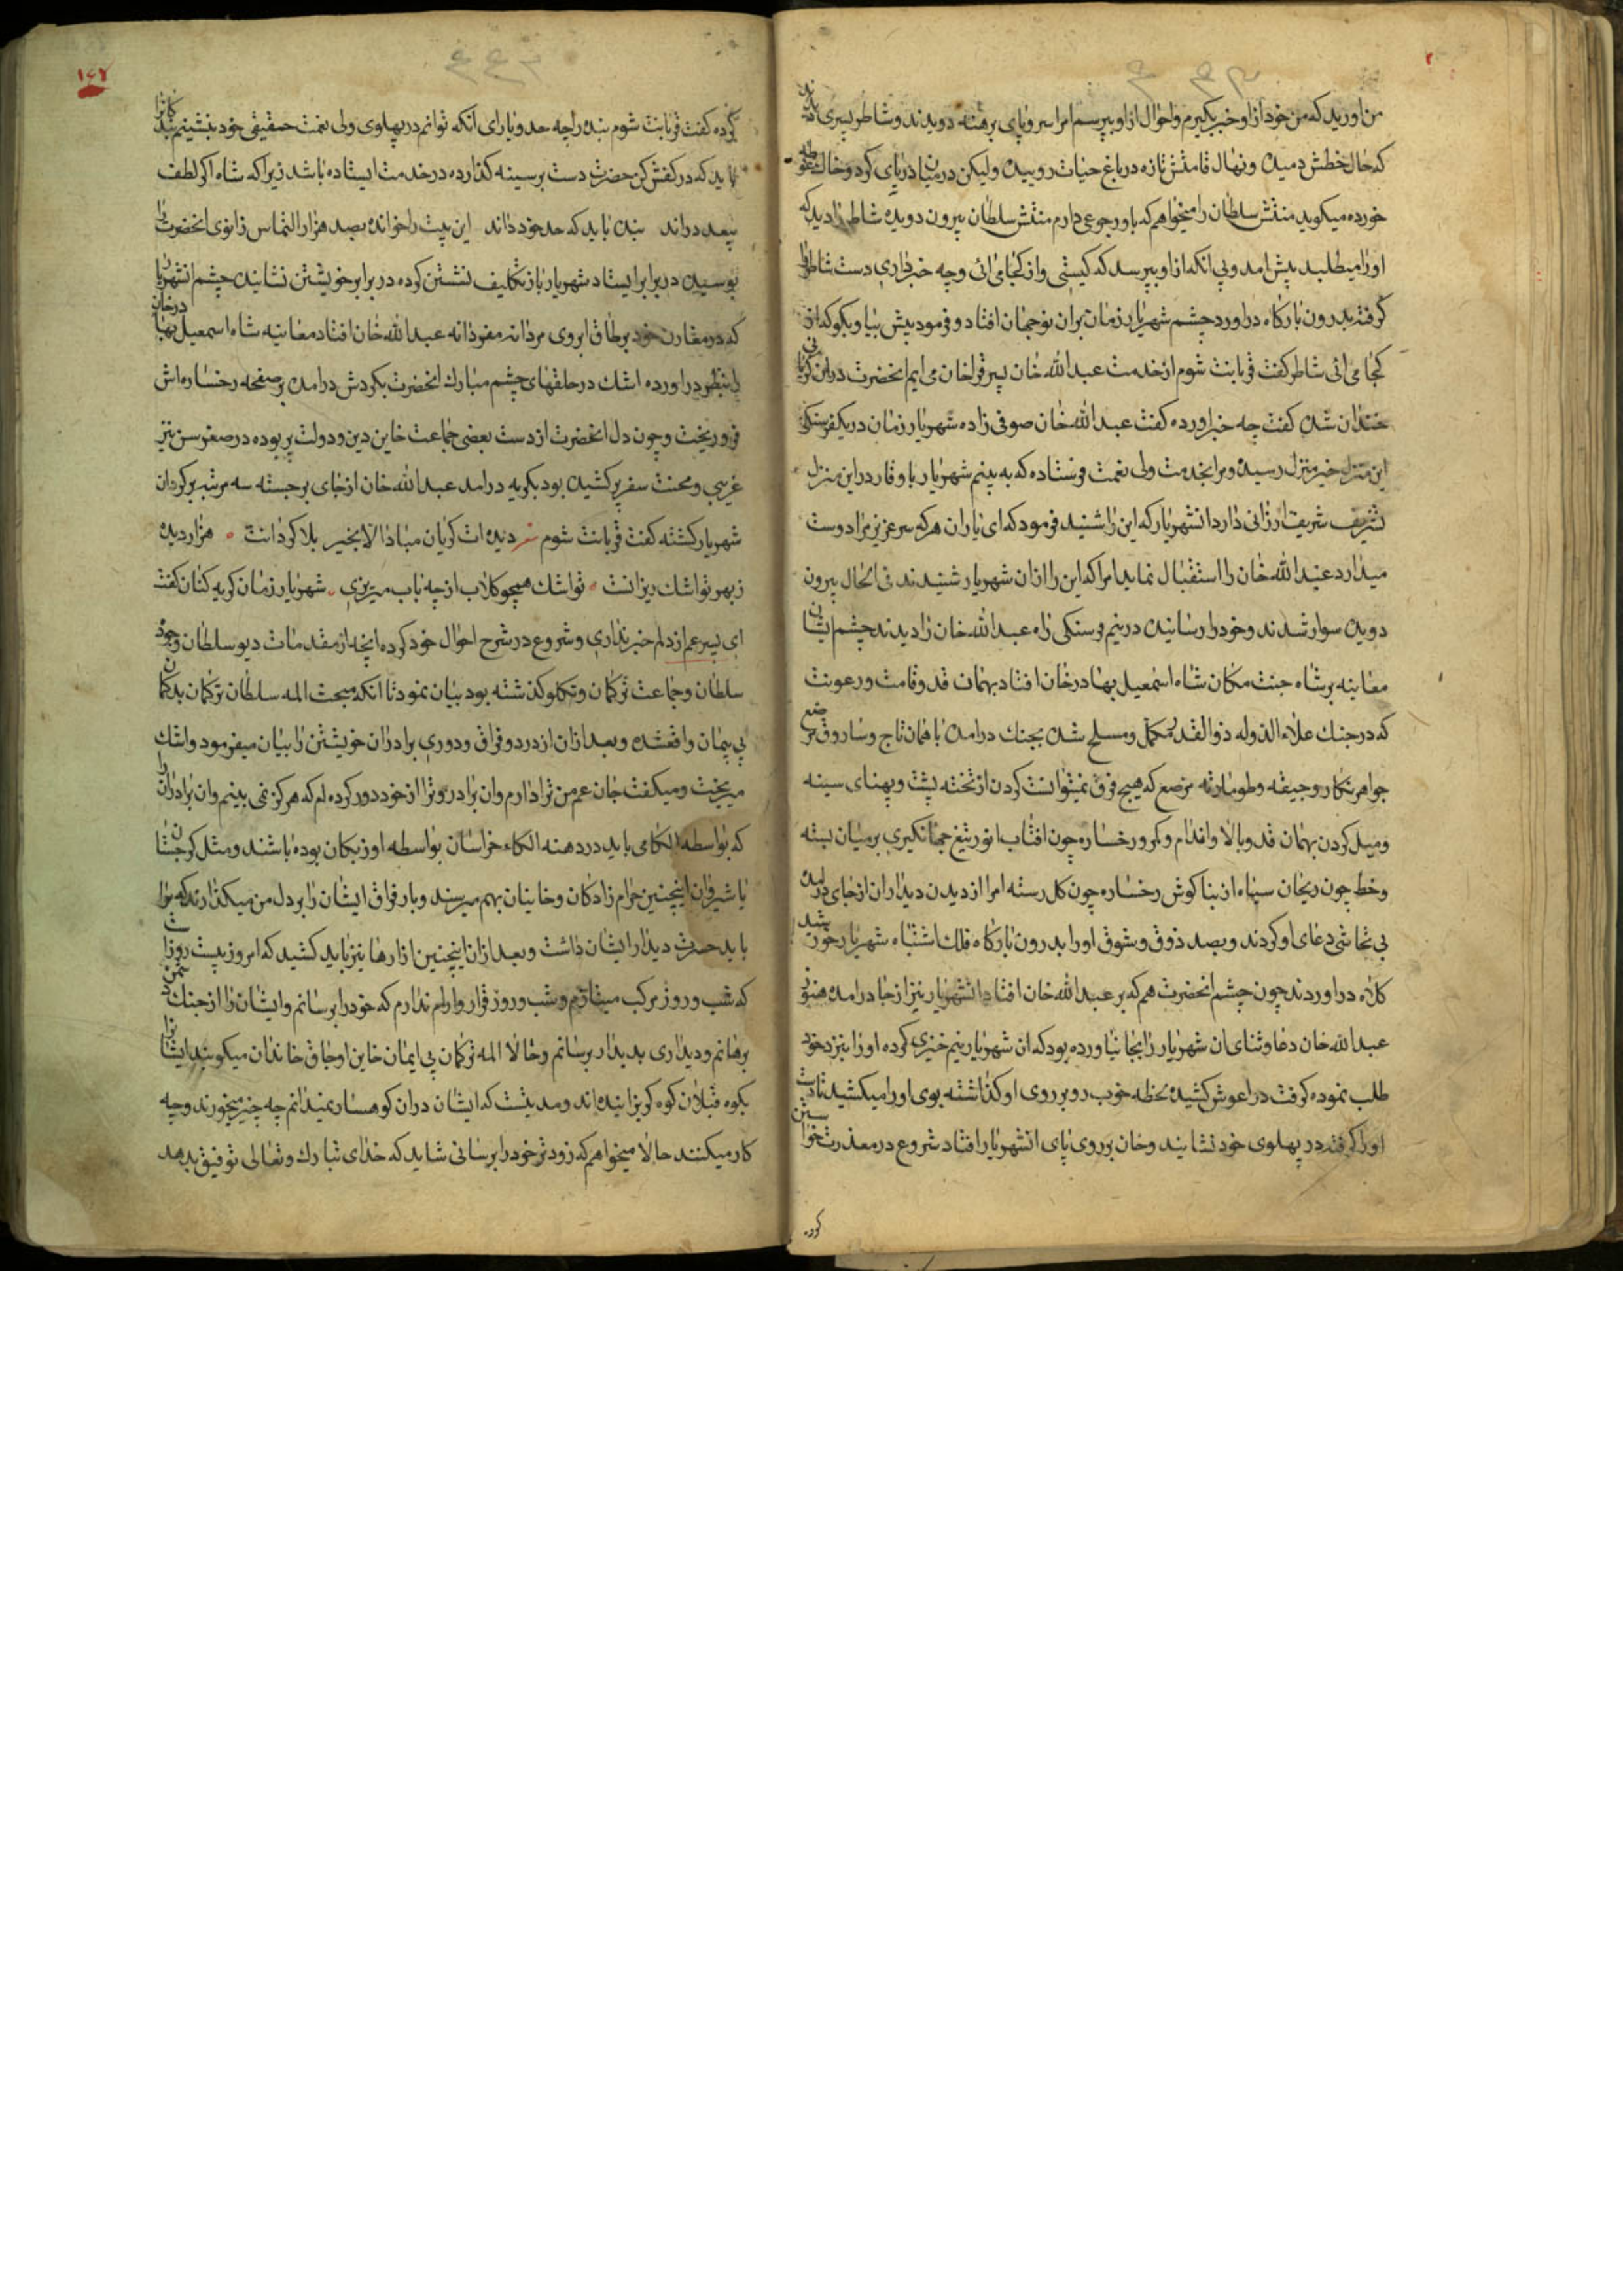 من اورید که من خود از او خبر بکیرم و احوال از او بپرسم امرا سر و پای برهنه دویدند و شاطر پسری دیدند
که خال خطش دمیده و نهال قامتش تازه در باغ حیات روییده ولیکن در میان دریای کرد و خاک غوطه
خورده میکوید منتش سلطان را میخواهم که باو رجوعی دارم منتش سلطان بیرون دویده شاطر را دید که
اورا میطلبد پیش امد و بی انکه از او بپرسد که کیستی و از کجا می ائی و چه خبر داری دست شاطر را
کرفته بدرون بارکاه دراورد چشم شهریار زمان بران نوجوان افتاد و فرمود پیش بیا و بکو که از
کجا می ائی شاطر کفت قربانت شوم از خدمت عبد الله خان پسر قراخان می ایم انحضرت دران کریانی
خندان شده کفت چه خبر اورده کفت عبد الله خان صوفی زاده شهریار زمان در یکفرسنکی
این منزل خبر منزل رسیده و مرا بخدمت ولی نعمت فرستاده که به بینم شهریار با وقار در این منزل
تشریف شریف ارزانی دارد انشهریار که این را شنید فرمود که ای یاران هر که سر عزیز مرا دوست
میدارد عبد الله خان را استقبال نماید امرا که این را ازان شهریار شنیدند فی الحال بیرون
دویده سوار شدند و خود را رسانیده در نیم فرسنکی راه عبد الله خان را دیدند چشم ایشان
معاینه بر شاه جنت مکان شاه اسمعیل بهادرخان افتاد بهمان قد و قامت و رعونت
که در جنک علاء الدوله ذوالقدر مکمل و مسلح شده بجنک درامده با همان تاج و ساروق مرصع
جواهر نکار و جیقه و طومارته مرصع که هیچ فرق نمیتوانست کردن از تخته پشت و پهنای سینه
و میل کردن بهمان قد و بالا و اندام و کر و رخساره چون افتاب انور تیغ جهانکیری بر میان بسته
و خط چون ریحان سیاه از بناکوش رخساره چون کل رسته امرا از دیدن دیدار ان از جای درامده
بی تحاشی دعای او کردند و بصد ذوق و شوق اورا بدرون بارکاه فلک اشتباه شهریار خورشید
کلاه دراوردند چون چشم انحضرت هم که بر عبد الله خان افتاد انشهریار نیز از جا درامده هنوز
عبد الله خان دعا و ثنای ان شهریار را بجا نیاورده بود که ان شهریار نیم خیزی کرده اورا بنزد خود
طلب نموده کرفت در اغوش کشیده لحظه خوب رو بر روی او کذاشته بوی اورا میکشید تا دست
اورا کرفته در پهلوی خود نشانید و خان بر روی پای انشهریار افتاد شروع در معذرت خواستن
کرده
۱۴۷
کرده کفت قربانت شوم بنده را چه حد و یارای انکه توانم در پهلوی ولی نعمت حقیقی خود بنشینم بندکانرا
باید که در کفش کن حضرت دست بر سینه کذارده در خدمت ایستاده باشد زیرا که شاه اکر لطف
بیعدد راند بنده باید که حد خود داند این بیت را خوانده بصد هزار التماس زانوی انحضرت را
بوسیده در برابر ایستاد شهریار باز تکلیف نشستن کرده در برابر خویشتن نشانید چشم انشهریار
که در مقارن خود بر طاق ابروی مردانه مفردانه عبد الله خان افتاد معاینه شاه اسمعیل بهادرخان
را بنظر دراورده اشک در حلقهای چشم مبارک انحضرت بکردش درامده بر صفحه رخساره اش
فرو ریخت و چون دل انحضرت از دست بعضی جماعت خاین دین و دولت پر بوده در صغر سن نیز
غریبی و محنت سفر بر کشیده بود بکریه درامد عبد الله خان از جای برجسته سه مرتبه بر کردان
شهریار کشته کفت قربانت شوم دیده ات کریان مبادا الا بخیر بلا کردانت هزار دیده
ز بهر تو اشک ریزانست تو اشک همچو کلاب از چه باب میریزی شهریار زمان کریه کنان کفت
ای پسر عم از دلم خبر نداری و شروع در شرح احوال خود کرده انچه از مقدمات دیو سلطان و جوه
سلطان و جماعت ترکمان و تکلو کذشته بود بیان نمود تا انکه مبحث المه سلطان ترکمان بدکمان
بی پیمان واقعشده و بعد ازان از درد و فراق و دوری برادران خویشتن را بیان میفرمود و اشک
میریخت و میکفت جان عم من ترا دارم و ان برادر و ترا از خود دور کرده ام که هرکز نمی بینم و ان برادران را
که بواسطه الکا می باید در دهنه الکاء خراسان بواسطه اوزبکان بوده باشند و مثل کرجستان
یا شیروان اینچنین حرام زادکان و خاینان بهم میرسند و بار فراق ایشان را بر دل من میکذارند که مرا
باید حسرت دیدار ایشان داشت و بعد ازان اینچنین ازارها نیز باید کشید که امروز بیست روز است
که شب و روز مرکب میتازم و شب و روز قرار و ارام ندارم که خود را برسانم و ایشان را از جنک دشمن
برهانم و دیداری بدیدار برسانم و حالا المه ترکمان بی ایمان خاین اوجاق خاندان میکویند ایشانرا
بکوه قبلان کوه کریزانیده اند و مدتیست که ایشان دران کوهسار نمیدانم چه چیز میخورند و چه
کار میکنند حالا میخواهم که زودتر خود را برسانی شاید که خدای تبارک و تعالی توفیق بدهد